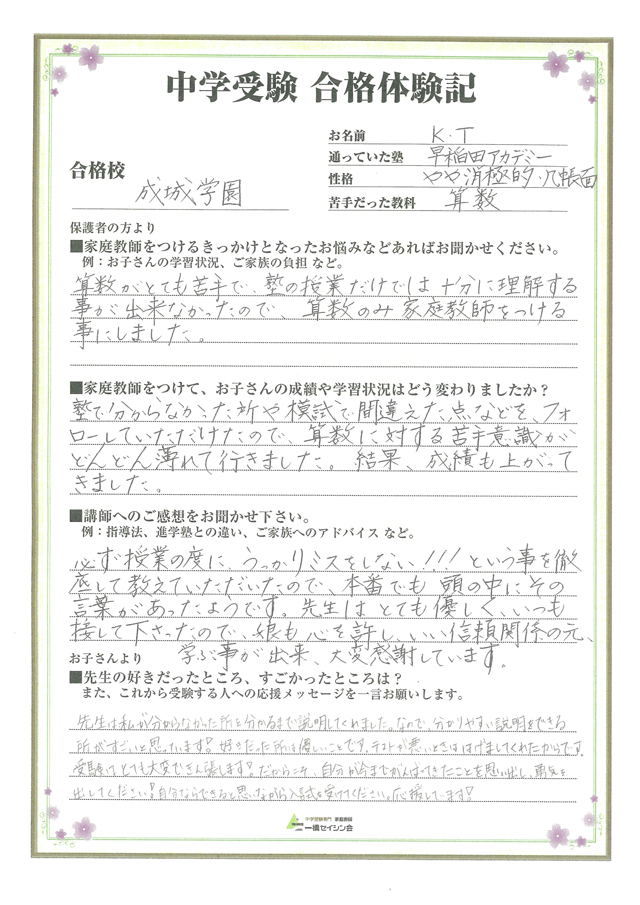 中学受験 合格体験記
お名前 K.T
通っていた塾 早稲田アカデミー
合格校 成城学園
性格 やや消極的・几帳面
苦手だった教科 算数
保護者の方より
■家庭教師をつけるきっかけとなったお悩みなどあればお聞かせください。
例：お子さんの学習状況、ご家族の負担 など。
算数がとても苦手で、塾の授業だけでは十分に理解する
事が出来なかったので、算数のみ家庭教師をつける
事にしました。
■家庭教師をつけて、お子さんの成績や学習状況はどう変わりましたか？
塾で分からなかった所や模試で間違えた点などを、フォ
ローしていただけたので、算数に対する苦手意識が
どんどん薄れて行きました。結果、成績も上がって
きました。
■講師へのご感想をお聞かせ下さい。
例：指導法、進学塾との違い、ご家族へのアドバイス など。
必ず授業の度に、うっかりミスをしない!!!という事を徹
底して教えていただいたので、本番でも頭の中にその
言葉があったようです。先生はとても優しく、いつも
接して下さったので、娘も心を許し、いい信頼関係の元、
学ぶ事が出来、大変感謝しています。
お子さんより
■先生の好きだったところ、すごかったところは？
また、これから受験する人への応援メッセージを一言お願いします。
先生は私が分からなかった所を分かるまで説明してくれました。なので、分かりやすい説明をできる
所がすごいと思っています！好きだった所は優しいことです。テストが悪いときははげましてくれたからです。
受験はとても大変できん張します！だからこそ、自分が今までがんばってきたことを思い出し、勇気を
出してください！自分ならできると思いながら入試を受けてください。応援しています！
中学受験専門 家庭教師
一橋セイシン会